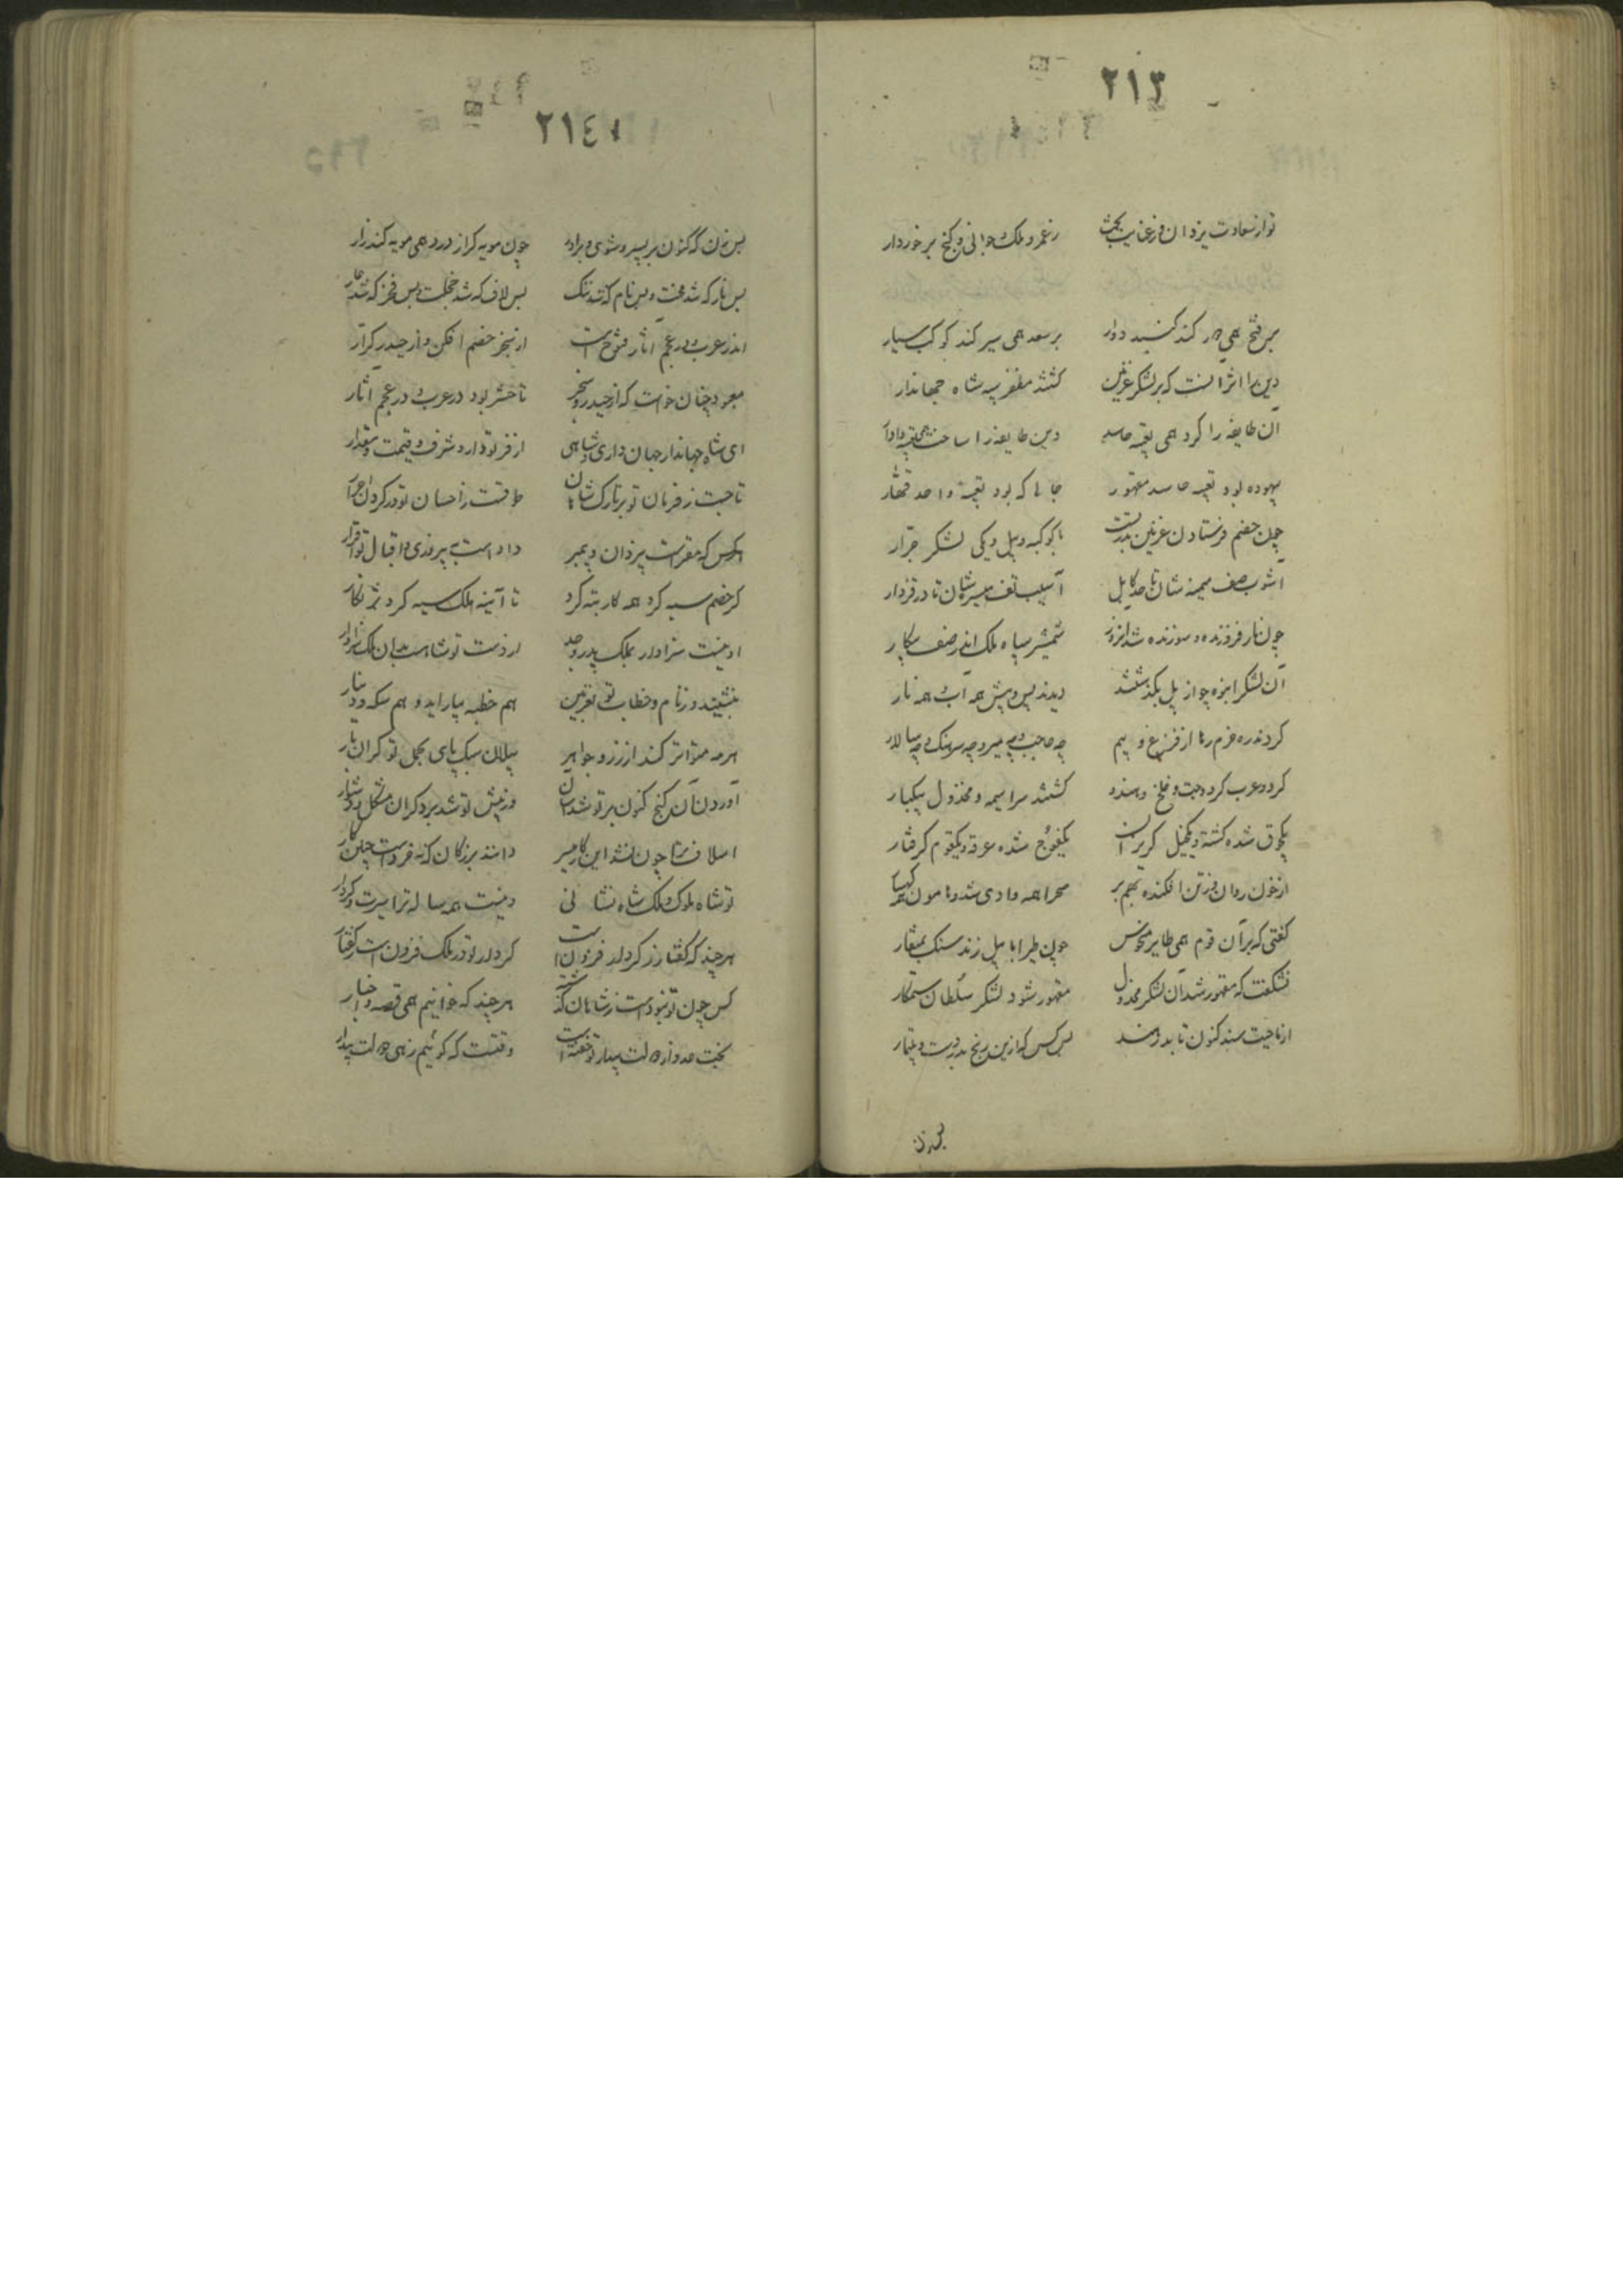 ٢١٣
تو از سعادت یزدان و رغایب بخت ز عمر و ملک و جوانی و گنج برخوردار
بر فتح همی دور کند کنبد دوار بر سعد همی سیر کند کوکب سیار
دین را اثر آنست که بر لشکر غزنین کشتند مظفر سپه شاه جهاندار
آن طایفه را کرد همی تعبیه حاسد وین طایفه را ساخت همی تعبیه دادار
بیهوده بود تعبیه حاسد مقهور جایی که بود تعبیهٔ واحد قهار
چون خصم فرستاد ز غزنین بدر بست با کوکبه و پیل و یکی لشکر جرار
آشوب صف میمنه شان تا حد کابل آسیب تف میسره شان تا در قزدار
چون نار فروزنده و سوزنده شد آنروز شمشیر سپاه ملک اندر صف پیکار
آن لشکر انبوه چو از پل بگذشتند دیدند پس و پیش همه آب همه نار
کردند ره حزم رها از فزع و بیم چه حاجب و چه میر و چه سرهنک و چه سالار
کرد و عرب کرد و بت و خلج و هندو کشتند سراسیمه و مخذول بیکبار
یکجوق شده کشته و یکخیل کریزان یکفوج شده غرقه و یکقوم کرفتار
از خون روان وز تن افکنده بهم بر صحرا همه وادی شد و هامون همه کهسار
کفتی که بر آن قوم همی طایر منحوس چون طیر ابابیل زند سنک بمنقار
نشکفت که مقهور شد آن لشکر مخذول مقهور شود لشکر سلطان ستمکار
از ناحیت سند کنون تا بدر هند بس کس که ازین رنج بدردست و بتیمار
بس زن
٢١٤
بس زن که کنون بر پسر و شوی و برادر چون مویه کر از درد همی مویه کند زار
بس ناز که شد محنت و بس نام که شد ننک بس لاف که شد خجلت و بس فخر که شد عار
اندر عرب و در عجم آثار فتوح است از سنجر خصم افکن و از حیدر کرار
معبود چنان خواست که از حیدر و سنجر تا حشر بود در عرب و در عجم آثار
ای شاه جهاندار جهان داری و شاهی از فر تو دارد شرف و قیمت و مقدار
تاجیست ز فرمان تو بر تارک شاهان طوقیست ز احسان تو در کردن احرار
هرکس که مقر است بیزدان و پیمبر داده است به پیروزی و اقبال تو اقرار
کر خصم سیه کرد همه کار بته کرد تا آینه ملک سیه کرد بزنکار
او نیست سزاوار بملک پدر و جد از دست تو شاهست بدان ملک سزاوار
بنشیند وز نام و خطاب تو بغزنین هم خطبه بیاراید و هم سکه و دینار
هر مه متواتر کند از زر و جواهر پیلان سبک پای بحمل تو کران بار
آوردن آن کنج کنون بر تو شد آسان وز پیش تو شد بر دکران مشکل و دشوار
اسلاف ترا چون نشد این کار میسر دانند بزرکان که نه خرد است چنین کار
تو شاه ملوک و ملک شاه نشانی وینست همه ساله ترا سیرت و کردار
هر چند که کفتار ز کردار فزون است کردار تو در ملک فزون است ز کفتار
کس چون تو نبودست ز شاهان کذشته هر چند که خوانیم همی قصه و اخبار
بخت عدو از دولت بیدار تو خفته است وقتست که کوئیم زهی دولت بیدار